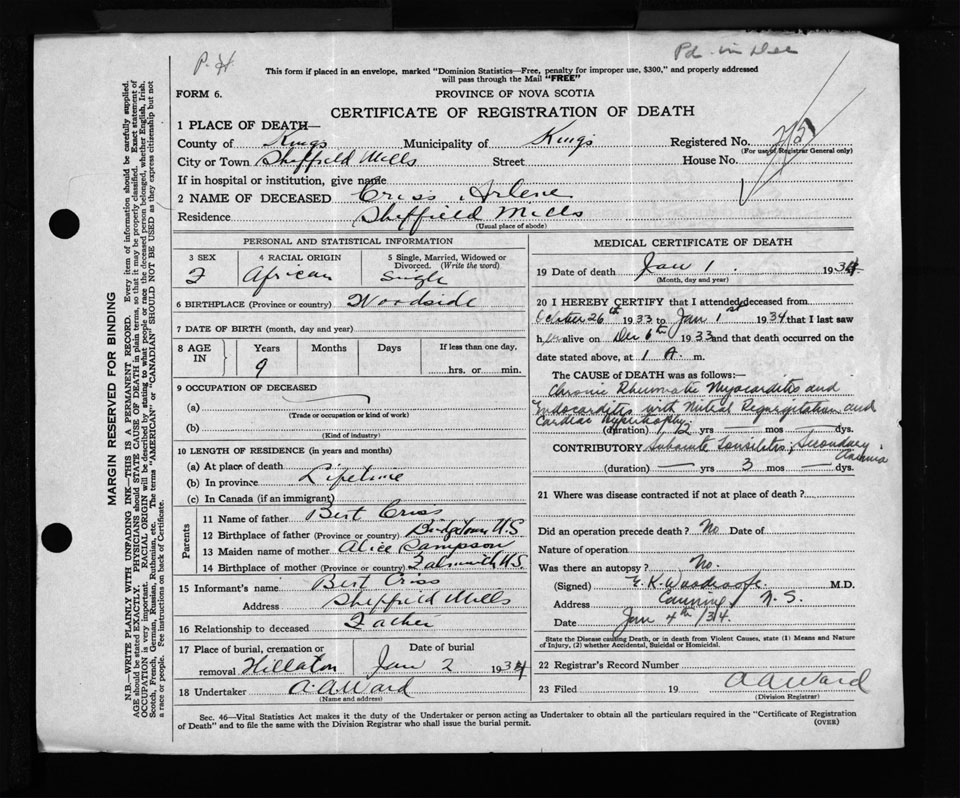 P. H
Pd. in Dec
This form if placed in an envelope, marked "Dominion Statistics—Free, penalty for improper use, $300," and properly addressed
will pass through the Mail "FREE"
FORM 6.
PROVINCE OF NOVA SCOTIA
CERTIFICATE OF REGISTRATION OF DEATH
1 PLACE OF DEATH—
County of Kings Municipality of Kings Registered No.
(For use of Registrar General only)
City or Town Sheffield Mills Street House No.
If in hospital or institution, give name
2 NAME OF DECEASED Criss Arlene
Residence Sheffield Mills
(Usual place of abode)
MARGIN RESERVED FOR BINDING
N.B.—WRITE PLAINLY WITH UNFADING INK—THIS IS A PERMANENT RECORD. Every item of information should be carefully supplied.
AGE should be stated EXACTLY. PHYSICIANS should STATE CAUSE OF DEATH in plain terms, so that it may be properly classified. Exact statement of
OCCUPATION is very important. RACIAL ORIGIN will be described by stating to what people or race the deceased person belonged, whether English, Irish,
Scotch, French, German, Russian, Ruthenian, etc. The terms "AMERICAN" or "CANADIAN" SHOULD NOT BE USED as they express citizenship but not
a race or people. See instructions on back of Certificate.
PERSONAL AND STATISTICAL INFORMATION
3 SEX 4 RACIAL ORIGIN 5 Single, Married, Widowed or
Divorced. (Write the word)
F African Single
6 BIRTHPLACE (Province or country) Woodside
7 DATE OF BIRTH (month, day and year)
8 AGE IN Years Months Days If less than one day,
9 hrs. or min.
9 OCCUPATION OF DECEASED
(a)
(Trade or occupation or kind of work)
(b)
(Kind of industry)
10 LENGTH OF RESIDENCE (in years and months)
(a) At place of death
(b) In province Lifetime
(c) In Canada (if an immigrant)
Parents
11 Name of father Bert Criss
12 Birthplace of father (Province or country) Bridgetown N.S.
13 Maiden name of mother Alice Sampson
14 Birthplace of mother (Province or country) Falmouth N.S.
15 Informant's name Bert Criss
Address Sheffield Mills
16 Relationship to deceased Father
17 Place of burial, cremation or Date of burial
removal Hillaton Jan 2 1934
18 Undertaker A.A. Ward
(Name and address)
MEDICAL CERTIFICATE OF DEATH
19 Date of death Jan 1. 1934
(Month, day and year)
20 I HEREBY CERTIFY that I attended deceased from
October 26th 1933 to Jan 1st 1934 that I last saw
her alive on Dec 6th 1933 and that death occurred on the
date stated above, at 1 A. m.
The CAUSE OF DEATH was as follows:—
Chronic Rheumatic Myocarditis and
Endocarditis with Mitral Regurgitation and
Cardiac Hypertrophy.
(duration) yrs — mos — dys.
CONTRIBUTORY Subacute Tonsilitis, Secondary
Anemia
(duration) — yrs 3 mos — dys.
21 Where was disease contracted if not at place of death?
Did an operation precede death? No Date of
Nature of operation
Was there an autopsy? No.
(Signed) E. K. Woodroofe M.D.
Address Canning N.S.
Date Jan 4th/34
State the Disease causing Death, or in death from Violent Causes, state (1) Means and Nature
of Injury, (2) whether Accidental, Suicidal or Homicidal.
22 Registrar's Record Number
23 Filed 19 A A Ward
(Division Registrar)
Sec. 46—Vital Statistics Act makes it the duty of the Undertaker or person acting as Undertaker to obtain all the particulars required in the "Certificate of Registration
of Death" and to file the same with the Division Registrar who shall issue the burial permit. (OVER)